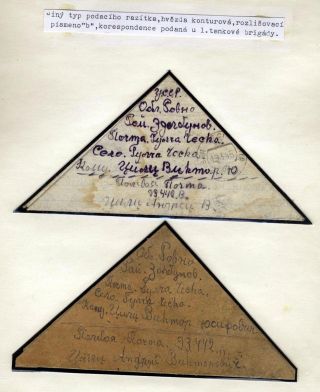 iný typ podacího razítka,hvězda konturová,rozlišovací
písmeno"b",korespondence podaná u 1.tankové brigády.
УССР.
Обл. Ровно
Рай. Здолбунов.
Почта. Гулча Ческа.
Село. Гулча Ческа.
Кому. Виктор. Ю.
Полевая Почта.
93449. В.
Об. Ровно
Рай. Здолбунов.
Почта. Гулча Ческа.
Село. Гулча Ческа.
Кому. Виктор
Полевая Почта. 93449
Андрей Викторович